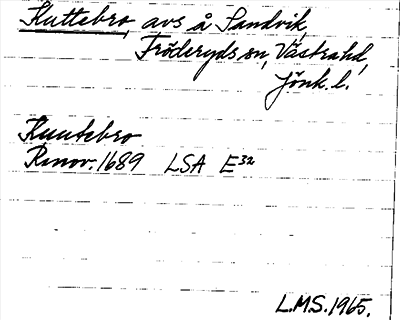 Kuttebro, avs å Sandvik,
Fröderyds sn, Västra hd,
Jönk. l.
Kuutebro
Renov. 1689 LSA E32
L.M.S. 1965.